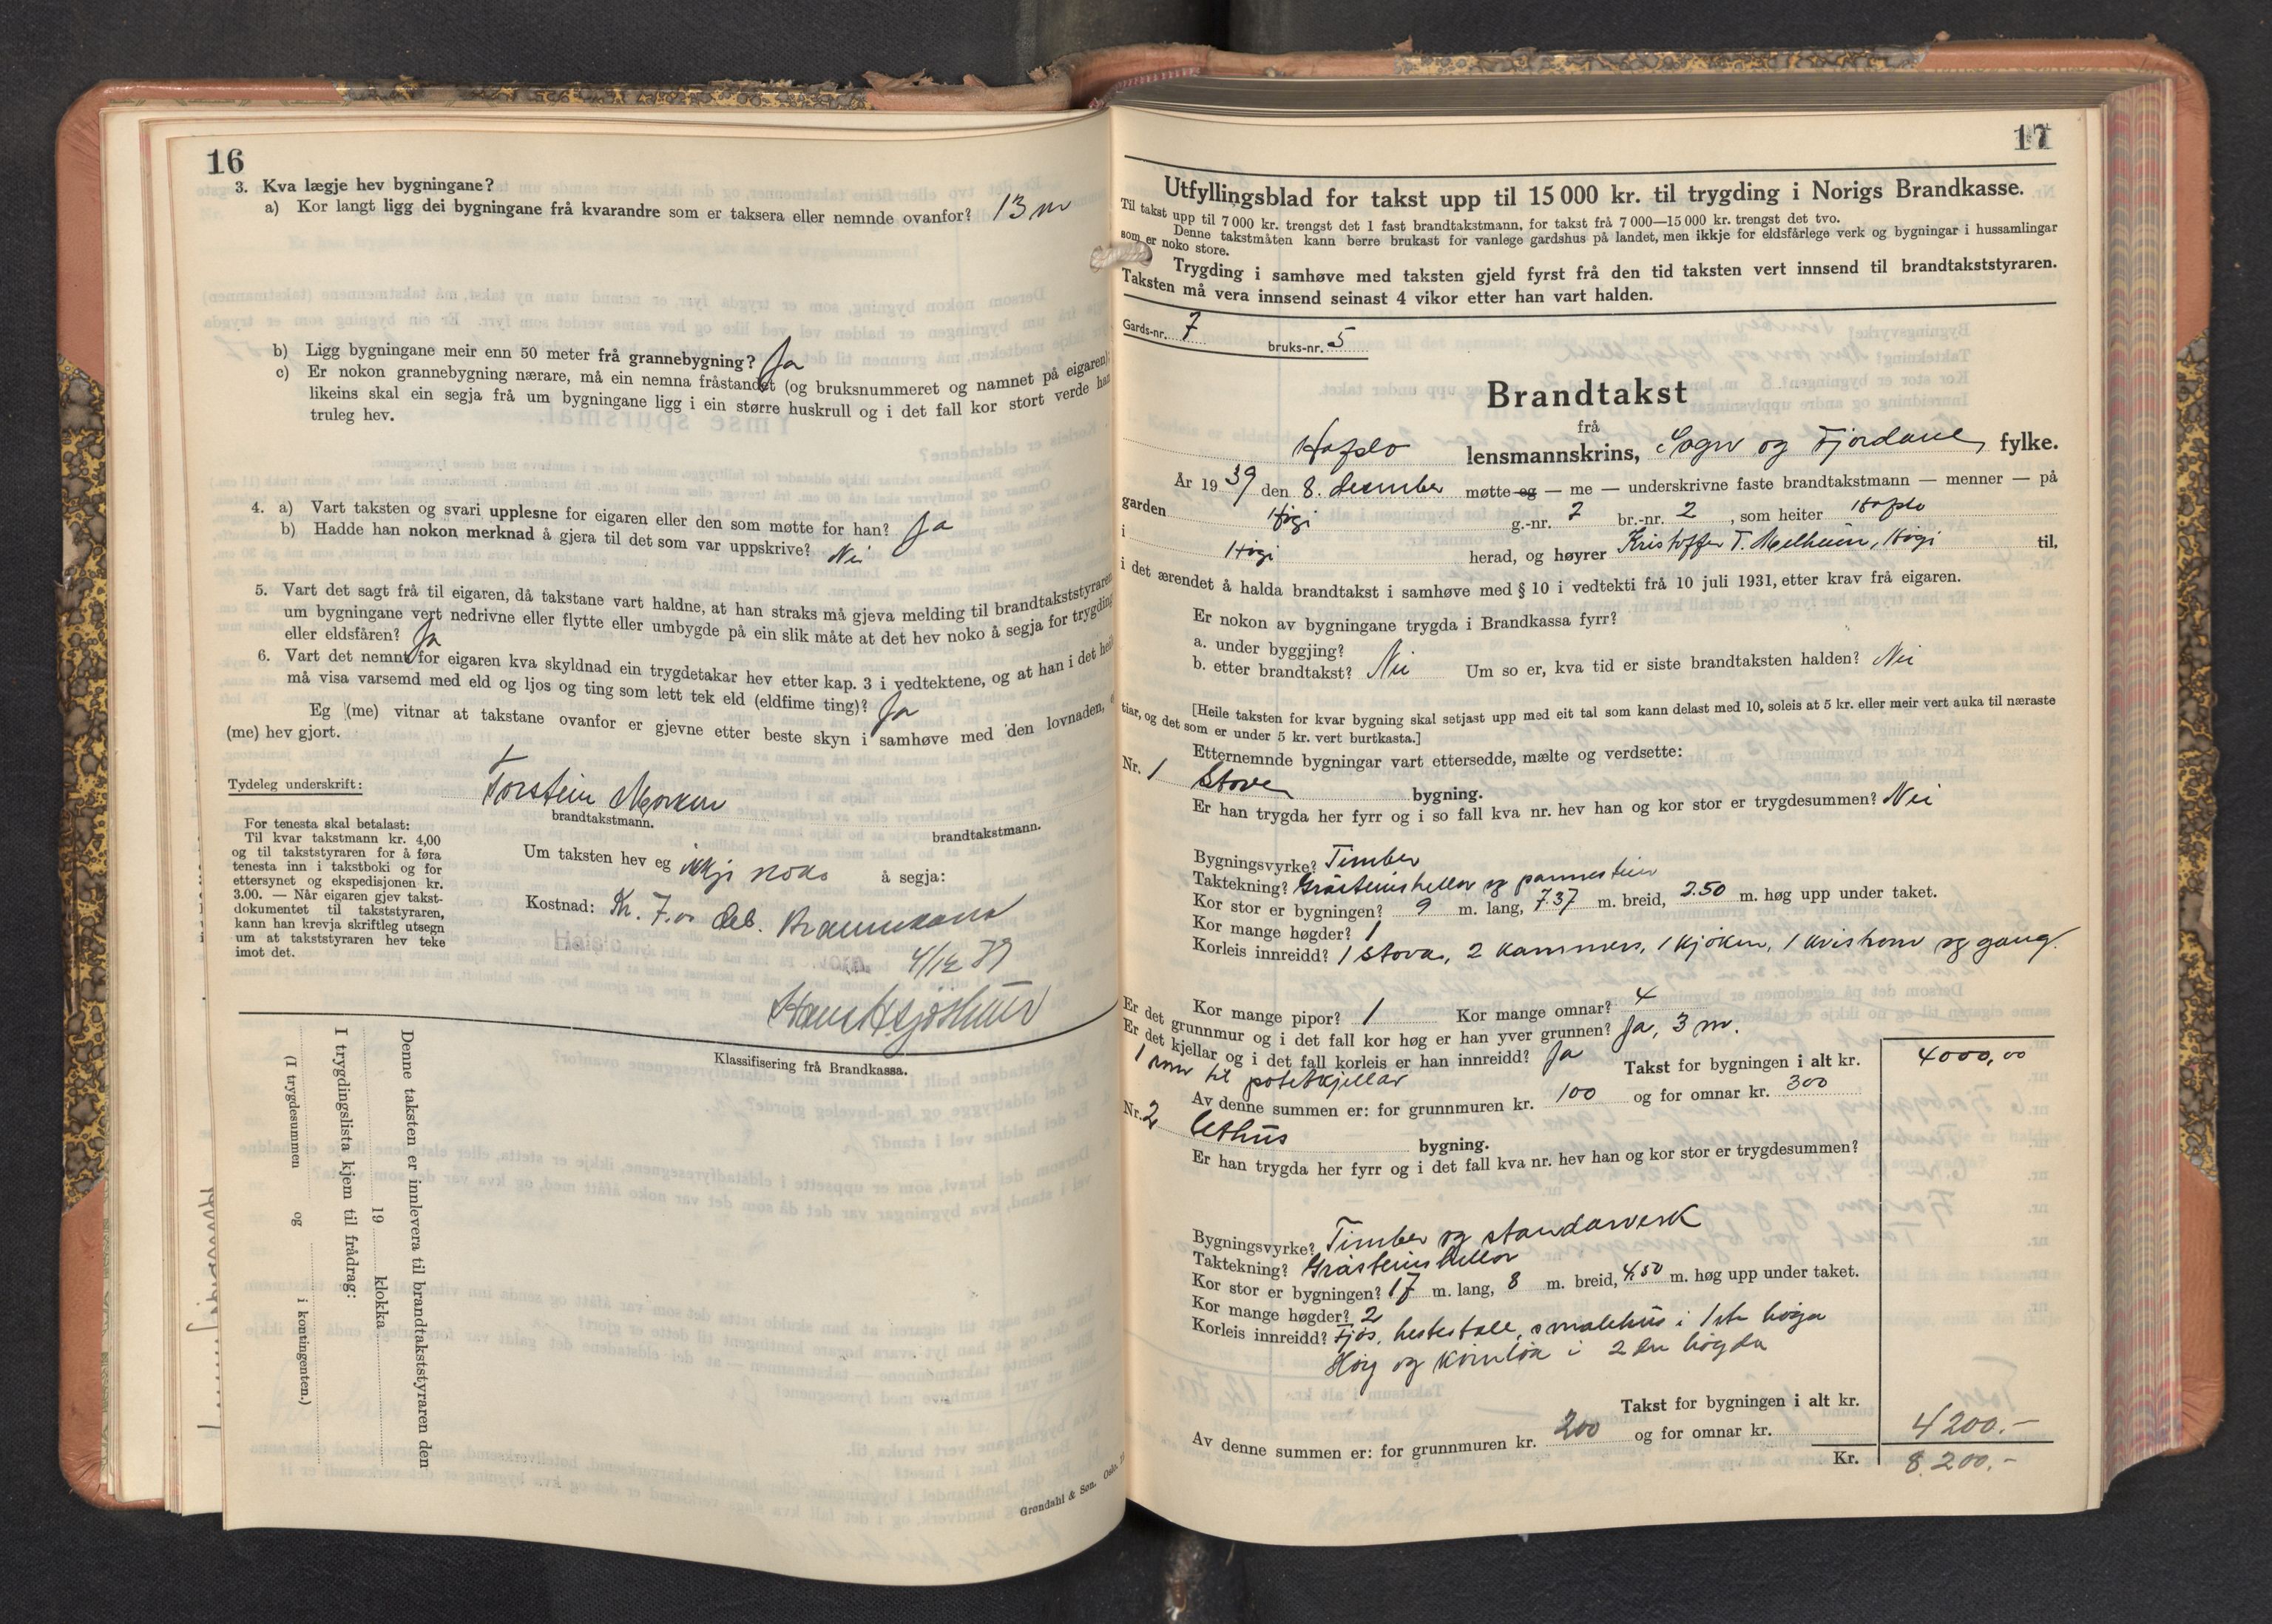 16
3. Kva lægje hev bygningane?
a) Kor langt ligg dei bygningane frå kvarandre som er taksera eller nemnde ovanfor? 13 m
b) Ligg bygningane meir enn 50 meter frå grannebygning? Ja
c) Er nokon grannebygning nærare, må ein nemna fråstandet (og bruksnummeret og namnet på eigaren);
likeins skal ein segja frå um bygningane ligg i ein større huskrull og i det fall kor stort verde han
truleg hev.
4. a) Vart taksten og svari upplesne for eigaren eller den som møtte for han? Ja
b) Hadde han nokon merknad å gjera til det som var uppskrive? Nei
5. Vart det sagt frå til eigaren, då takstane vart haldne, at han straks må gjeva melding til brandtakststyraren
um bygningane vert nedrivne eller flytte eller umbygde på ein slik måte at det hev noko å segja for trygding
eller eldsfåren? Ja
6. Vart det nemnt for eigaren kva skyldnad ein trygdetakar hev etter kap. 3 i vedtektene, og at han i det heile
må visa varsemd med eld og ljos og ting som lett tek eld (eldfime ting)? Ja
Eg (me) vitnar at takstane ovanfor er gjevne etter beste skyn i samhøve med den lovnaden,
(me) hev gjort.
Tydeleg underskrift:
Torstein Morken
brandtakstmann.
brandtakstmann.
For tenesta skal betalast:
Til kvar takstmann kr. 4,00
og til takststyraren for å føra
tenesta inn i takstboki og for
ettersynet og ekspedisjonen kr.
3.00. — Når eigaren gjev takst-
dokumentet til takststyraren,
kann han krevja skriftleg utsegn
um at takststyraren hev teke
imot det.
Um taksten hev eg ikkje noko å segja:
Kostnad: Kr. 7.00 deb. Brannkassa
Hafslo
4/12 39
Klassifisering frå Brandkassa.
Denne taksten er innlevera til brandtakststyraren den
19 klokka
I trygdingslista kjem til frådrag:
(I trygdesummen og i kontingenten.)
Grøndahl & Søn. Oslo.
17
Utfyllingsblad for takst upp til 15 000 kr. til trygding i Norigs Brandkasse.
Til takst upp til 7 000 kr. trengst det 1 fast brandtakstmann, for takst frå 7 000—15 000 kr. trengst det tvo.
Denne takstmåten kann berre brukast for vanlege gardshus på landet, men ikkje for eldsfårlege verk og bygningar i hussamlingar
som er noko store.
Trygding i samhøve med taksten gjeld fyrst frå den tid taksten vert innsend til brandtakststyraren.
Taksten må vera innsend seinast 4 vikor etter han vart halden.
Gards-nr. 7 bruks-nr. 5
Brandtakst
frå
Hafslo lensmannskrins, Sogn og Fjordane fylke.
År 1939 den 8. desember møtte eg — me — underskrivne faste brandtakstmann — menner — på
garden Høgi g.-nr. 7 br.-nr. 2, som heiter Hafslo
i Høgi herad, og høyrer Kristoffer T. Melheim, Høgi til,
i det ærendet å halda brandtakst i samhøve med § 10 i vedtekti frå 10 juli 1931, etter krav frå eigaren.
Er nokon av bygningane trygda i Brandkassa fyrr?
a. under byggjing?
b. etter brandtakst? Nei Um so er, kva tid er siste brandtaksten halden? Nei
[Heile taksten for kvar bygning skal setjast upp med eit tal som kann delast med 10, soleis at 5 kr. eller meir vert auka til næraste
tiar, og det som er under 5 kr. vert burtkasta.]
Etternemnde bygningar vart ettersedde, mælte og verdsette:
Nr. 1 Stove bygning.
Er han trygda her fyrr og i so fall kva nr. hev han og kor stor er trygdesummen? Nei
Bygningsvyrke? Timber
Taktekning? Gråsteinshellor og pannestein
Kor stor er bygningen? 9 m. lang, 7.37 m. breid, 2.50 m. høg upp under taket.
Kor mange høgder? 1
Korleis innreidd? 1 stova, 2 kammers, 1 kjøken, 1 kvistrom og gang.
Kor mange pipor? 1 Kor mange omnar? 4
Er det grunnmur og i det fall kor høg er han yver grunnen? Ja, 3 m.
Er det kjellar og i det fall korleis er han innreidd? Ja
1 rom til potetkjellar
Takst for bygningen i alt kr. 4000,00
Av denne summen er: for grunnmuren kr. 100 og for omnar kr. 300
Nr. 2 Uthus bygning.
Er han trygda her fyrr og i det fall kva nr. hev han og kor stor er trygdesummen?
Bygningsvyrke? Timber og standarverk
Taktekning? Gråsteinshellor
Kor stor er bygningen? 17 m. lang, 8 m. breid, 4.50 m. høg upp under taket.
Kor mange høgder? 2
Korleis innreidd? Fjøs, hestestall, smalehus i 1ste høgda
Høy og kornløa i 2dre høgda
Takst for bygningen i alt kr. 4200.-
Av denne summen er: for grunnmuren kr. 200 og for omnar kr.
Kr. 8.200.-